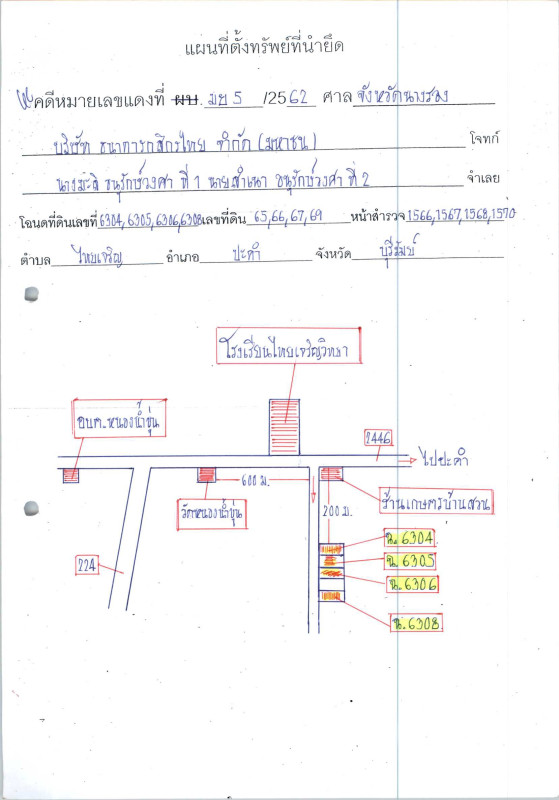 แผนที่ตั้งทรัพย์ที่นำยึด
คดีหมายเลขแดงที่ ผบ. มย 5 /2562 ศาล จังหวัดนางรอง
บริษัท ธนาคารกสิกรไทย จำกัด (มหาชน) โจทก์
อนุรักษ์วงศา ที่ 1 นายสำเนา อนุรักษ์วงศา ที่ 2 จำเลย
โฉนดที่ดินเลขที่ 6304, 6305, 6306, 6308 เลขที่ดิน 65, 66, 67, 69 หน้าสำรวจ 1566, 1567, 1568, 1570
ตำบล ไทยเจริญ อำเภอ ปะคำ จังหวัด บุรีรัมย์
โรงเรียนไทยเจริญวิทยา
อบต.หนองน้ำขุ่น
2446
ไปปะคำ
600 ม.
วัดหนองน้ำขุ่น
ร้านเกษตรบ้านสวน
200 ม.
224
ฉ. 6304
ฉ. 6305
ฉ. 6306
ฉ. 6308